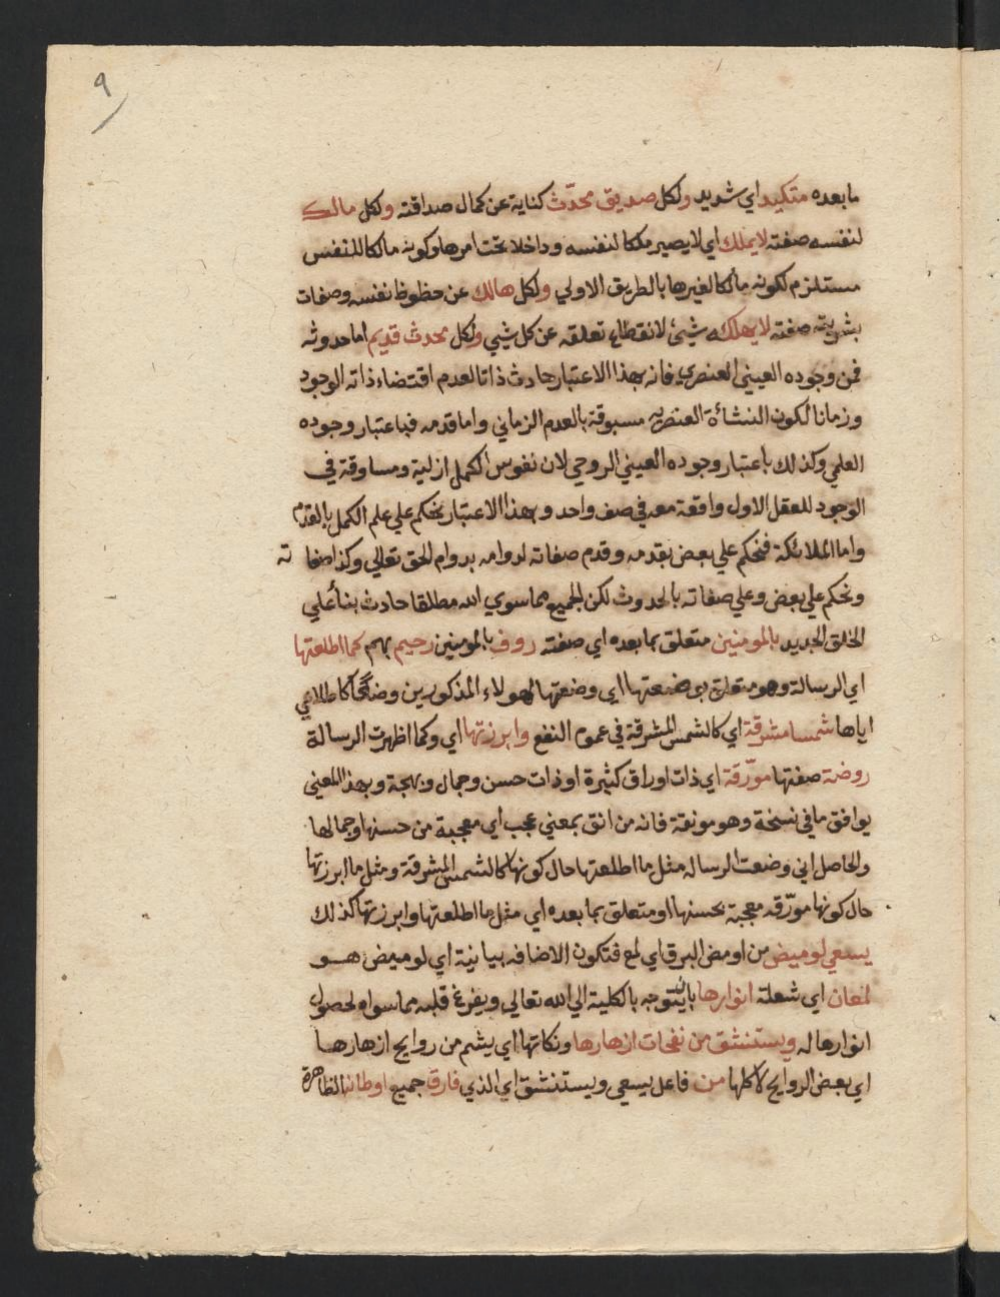 ٩
ما بعده متكيد اي شديد ولكل صديق محدّث كناية عن كمال صداقته ولكل مالك
لنفسه صفته لايملك اي لايصير ملكا لنفسه وداخلا تحت امرها وكونه مالكا للنفس
مستلزم لكونه مالكا لغيرها بالطريق الاولي ولكل هالك عن حظوظ نفسه وصفات
بشريته صفته لايهلكه شيئ لانقطاع تعلقه عن كل شيي ولكل محدث قديم اما حدوثه
فمن وجوده العيني العنصري فانه بهذا الاعتبار حادث ذاتا لعدم اقتضاء ذاته الوجود
وزمانا لكون النشأة العنصريه مسبوقة بالعدم الزماني واما قدمه فباعتبار وجوده
العلمي وكذلك باعتبار وجوده العيني الروحي لان نفوس الكمل ازلية ومساوقة في
الوجود للعقل الاول واقعة معه في صف واحد وبهذا الاعتبار يحكم علي علم الكمل بالقدم
واما الملائكة فنحكم علي بعض بقدمه وقدم صفاته لدوامه بدوام الحق تعالي وكذا صفا ته
ونحكم علي بعض وعلي صفاته بالحدوث لكن الجميع مما سوي الله مطلقا حادث بنأ علي
الخلق الجديد بالمومنين متعلق بما بعده اي صفته روف بالمومنين رحيم بهم كما اطلعتها
اي الرسالة وهو متعلق بوضعتها اي وضعتها لهولاء المذكورين وضعًا كاطلاعي
اياها شمسا مشرقة اي كالشمس المشرقة في عموم النفع وابرزتها اي وكما اظهرت الرسالة
روضة صفتها مورّقة اي ذات اوراق كثيرة او ذات حسن وجمال وبهجة وبهذا المعني
يوافق ما في نسخة وهو مونقة فانه من انق بمعني عجب اي معجبة من حسنها وجمالها
والحاصل اني وضعت الرساله مثل ما اطلعتها حال كونها كالشمس المشرقة ومثل ما ابرزتها
حال كونها مورّقه معجبة بحسنها او متعلق بما بعده اي مثل ما اطلعتها وابرزتها كذلك
يسعي لوميض من اومض البرق اي لمع فتكون الاضافه بيانية اي لوميض هو
لمعان اي شعلة انوارها بان يتوجه بالكلية الي الله تعالي ويفرغ قلبه مما سواه لحصول
انوارها له ويستنشق من نفحات ازهارها ونكاتها اي يشم من روايح ازهارها
اي بعض الروايح لا كلها من فاعل يسعي ويستنشق اي الذي فارق جميع اوطانه الظاهرة